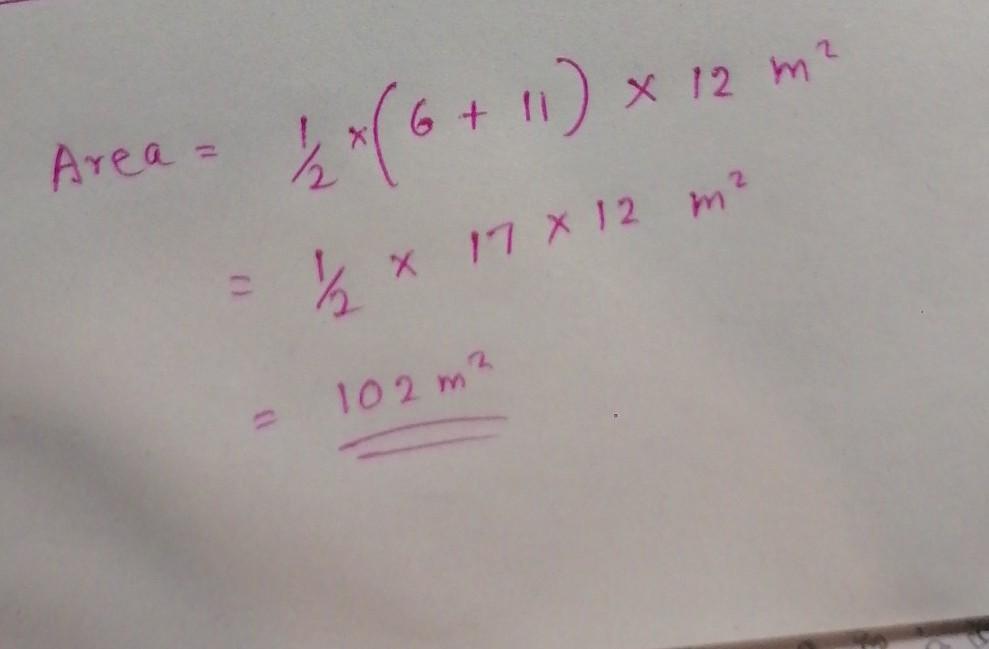 Area = 1/2 × (6 + 11) × 12 m²
= 1/2 × 17 × 12 m²
= 102 m²